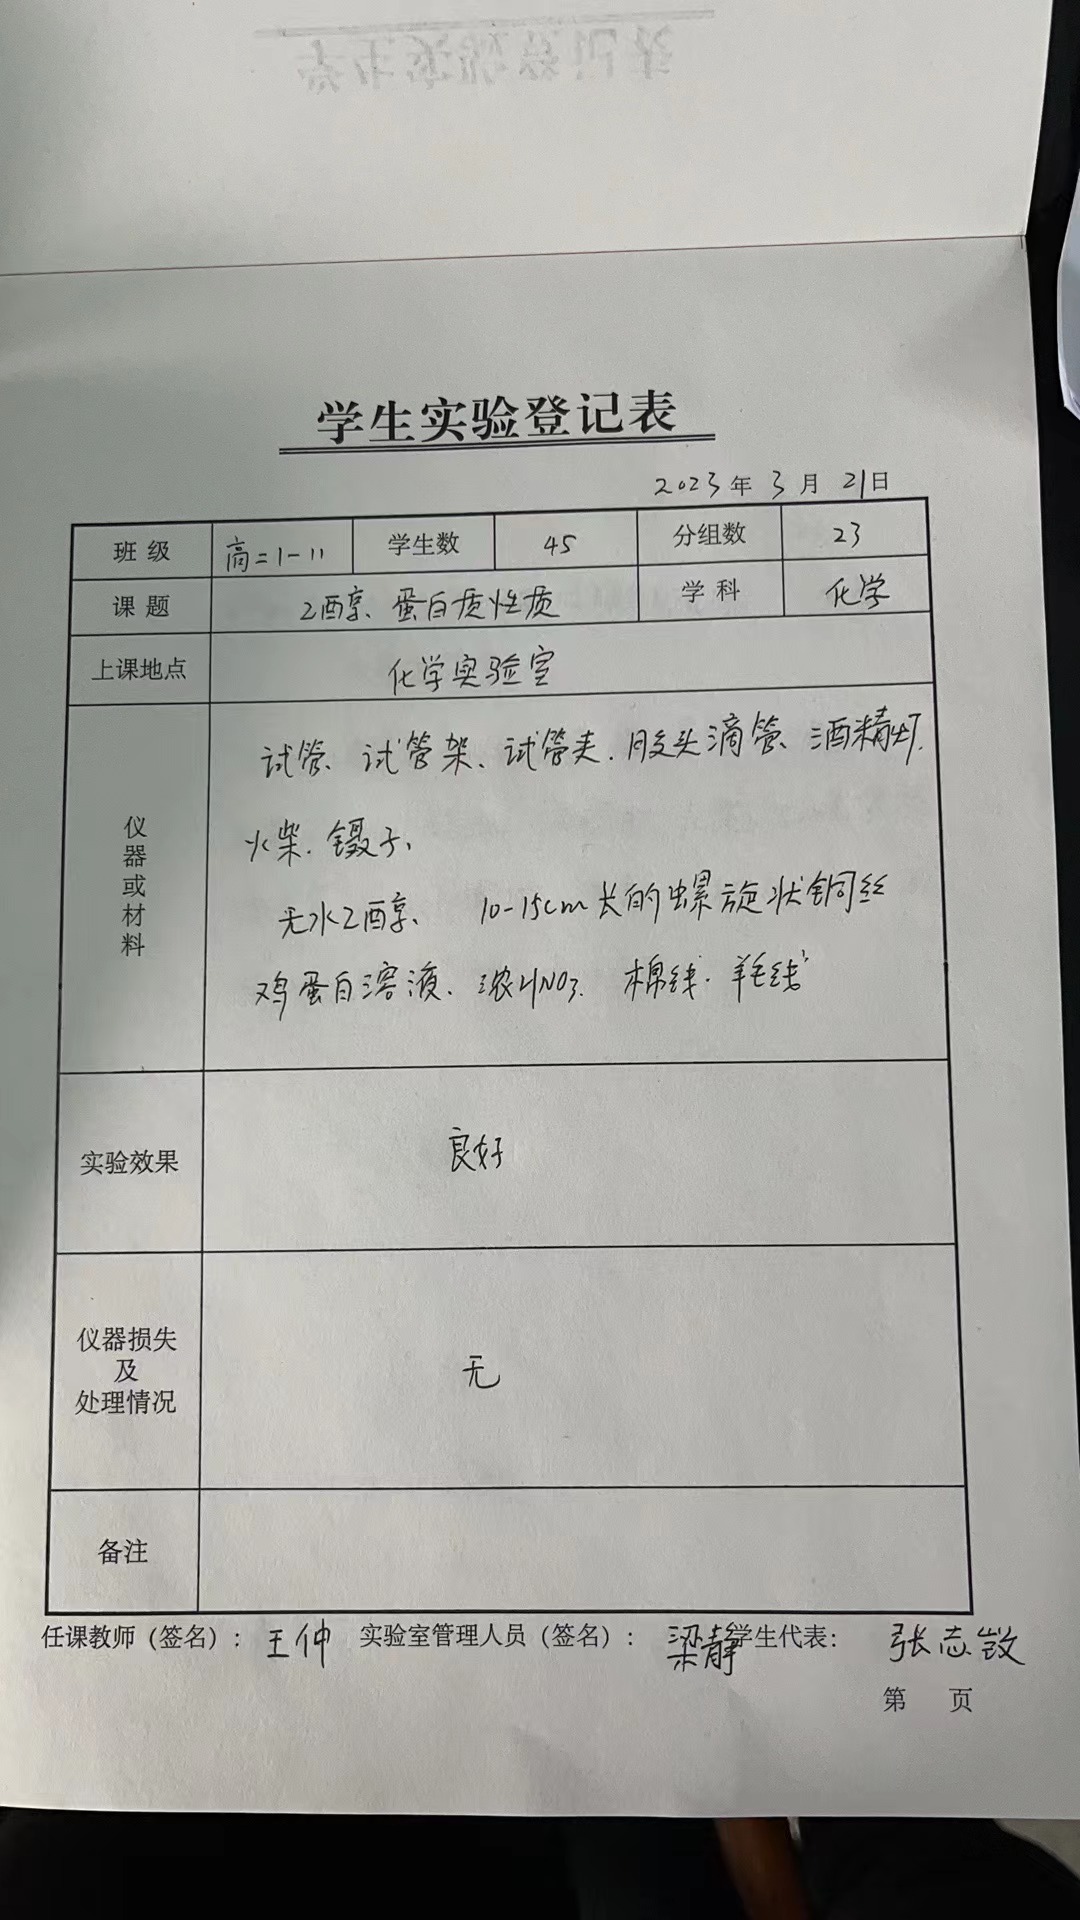 学生实验登记表
2023年3月21日
班级 高二1-11 学生数 45 分组数 23
课题 乙醇、蛋白质性质 学科 化学
上课地点 化学实验室
仪器或材料
试管、试管架、试管夹、胶头滴管、酒精灯、
火柴、镊子、
无水乙醇、 10-15cm长的螺旋状铜丝
鸡蛋白溶液、浓HNO3、棉线、羊毛线
实验效果 良好
仪器损失
及
处理情况
无
备注
任课教师(签名): 王仲 实验室管理人员(签名): 梁静 学生代表: 张志
第 页